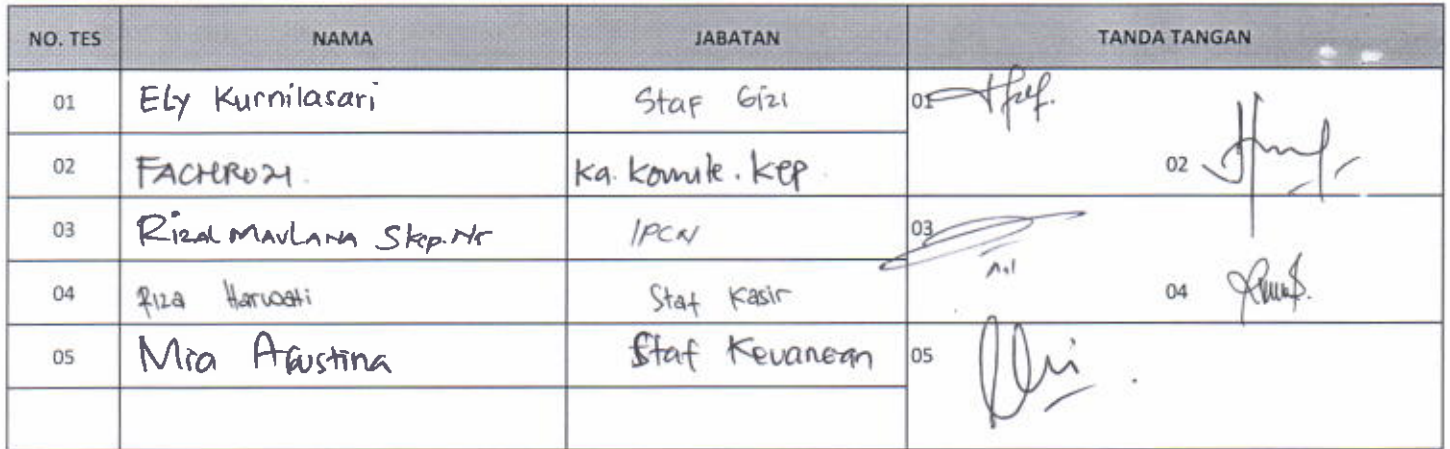 NO. TES NAMA JABATAN TANDA TANGAN
01 Ely Kurnilasari Staf Gizi 01
02 FACHROZI. Ka. Komite. Kep 02
03 Rizal MAULANA Skep.Nr IPCN 03
04 Riza Harwati Staf Kasir 04
05 Mia Agustina Staf Keuangan 05